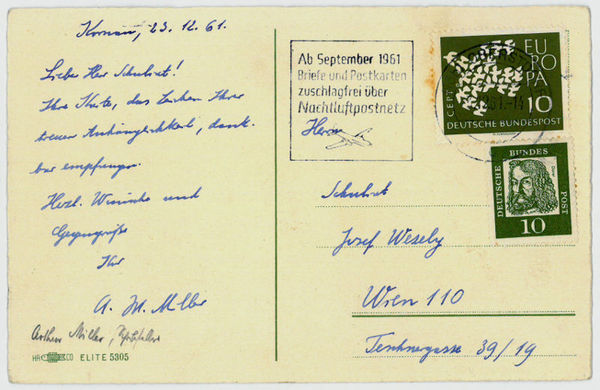 Kornau, 23.12.61.
Liebe Herr Schulrat!
Ihre Karte, das Zeichen Ihrer
treuen Anhänglichkeit, dank-
bar empfangen.
Herzl. Wünsche und
Gegengrüße
Ihr
A. M. Miller
Arthur Miller,
HA CO ELITE 5305
Ab September 1961
Briefe und Postkarten
zuschlagfrei über
Nachtluftpostnetz
EUROPA
CEPT
10
DEUTSCHE BUNDESPOST
DEUTSCHE BUNDES POST
Dürer
10
Herrn
Schulrat
Josef Wesely
Wien 110
Teschnergasse 39/19